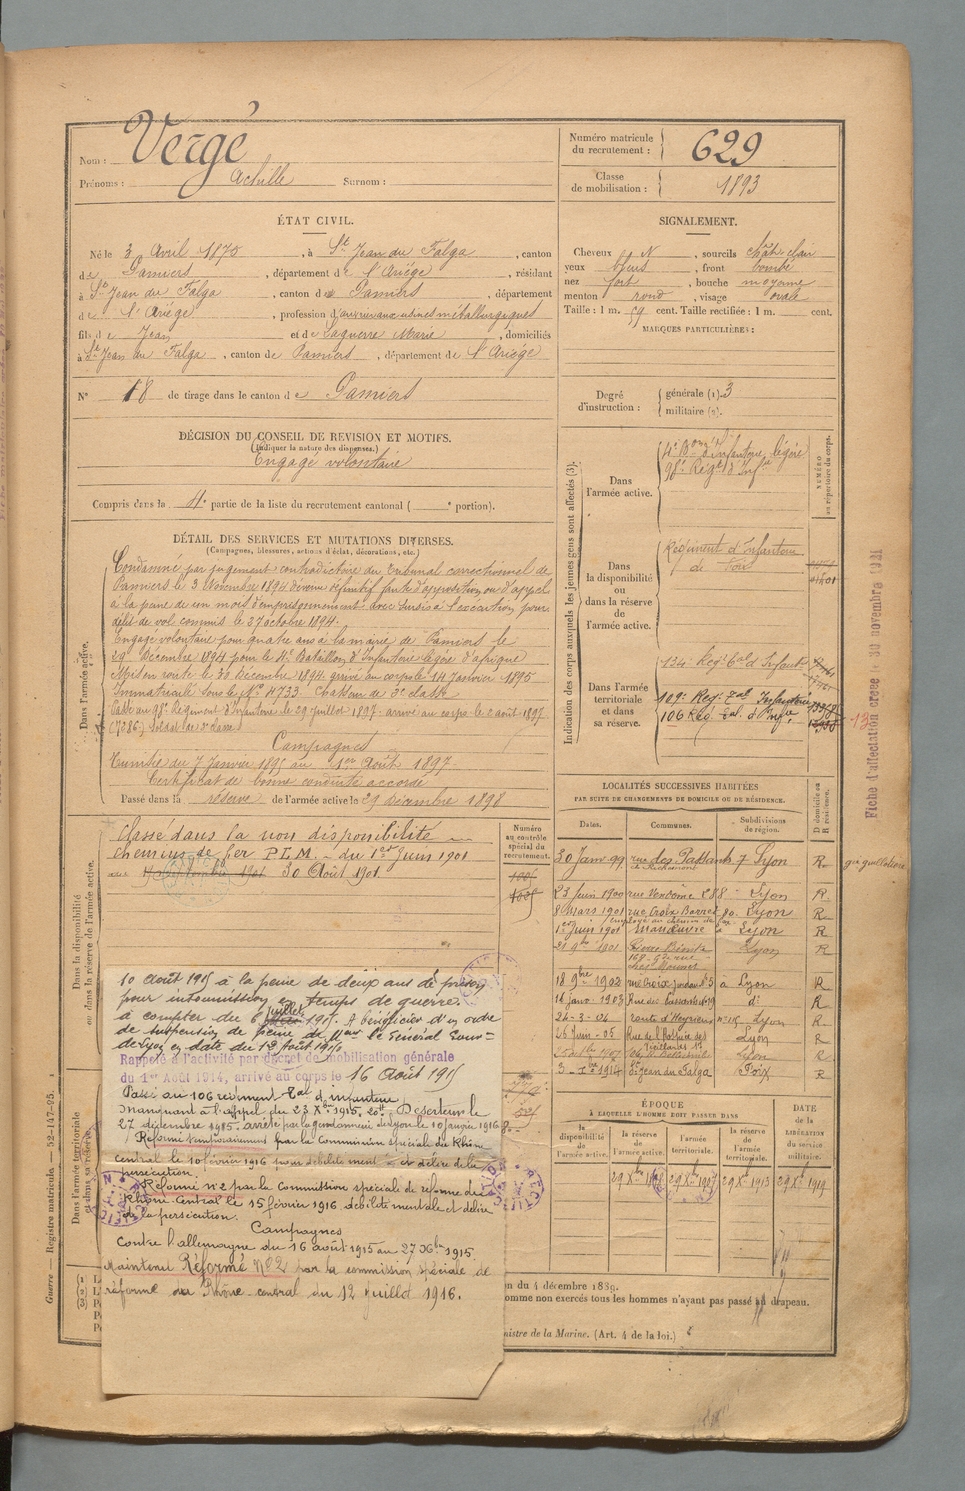 Nom : Vergé
Prénoms : Achille Surnom :
Numéro matricule du recrutement : 629
Classe de mobilisation : 1893
ÉTAT CIVIL.
Né le 3 Avril 1873, à St Jean du Falga, canton
de Pamiers, département de l'Ariége, résidant
à St Jean du Falga, canton de Pamiers, département
de l'Ariége, profession d'ouvrier aux usines métallurgiques
fils de Jean et de Laguerre Marie, domiciliés
à St Jean du Falga, canton de Pamiers, département de l'Ariége
N° 18 de tirage dans le canton de Pamiers
SIGNALEMENT.
Cheveux N, sourcils chât clair
yeux bleus, front bombé
nez fort, bouche moyenne
menton rond, visage ovale
Taille : 1 m. 59 cent. Taille rectifiée : 1 m. cent.
MARQUES PARTICULIÈRES :
Degré d'instruction : générale (1). 3
militaire (2).
DÉCISION DU CONSEIL DE REVISION ET MOTIFS.
(Indiquer la nature des dispenses.)
Engagé volontaire
Compris dans la 4e partie de la liste du recrutement cantonal ( e portion).
DÉTAIL DES SERVICES ET MUTATIONS DIVERSES.
(Campagnes, blessures, actions d'éclat, décorations, etc.)
Dans l'armée active.
Condamné par jugement contradictoire du tribunal correctionnel de
Pamiers le 3 Novembre 1894 devenu définitif faute d'opposition ou d'appel
à la peine de un mois d'emprisonnement avec sursis à l'exécution pour
délit de vol commis le 27 octobre 1894.
Engagé volontaire pour quatre ans à la mairie de Pamiers le
29 Décembre 1894 pour le 4e Bataillon d'Infanterie légère d'afrique
Mis en route le 30 Décembre 1894 arrivé au corps le 14 Janvier 1895
Immatriculé sous le No 4733. Chasseur de 2e classe
Passé au 98e Régiment d'Infanterie le 29 Juillet 1897 arrivé au corps le 2 août 1897
(7286) Soldat de 2e classe
Campagnes
Tunisie du 7 Janvier 1895 au 1er Août 1897
Certificat de bonne conduite accordé
Passé dans la réserve de l'armée active le 29 Décembre 1898
Dans la disponibilité ou dans la réserve de l'armée active.
Classé dans la non disponibilité
chemins de fer P.L.M. du 1er Juin 1901
au 30 Août 1901
Numéro au contrôle spécial du recrutement.
Dans l'armée territoriale et dans sa réserve.
10 Août 1915 à la peine de deux ans de prison
pour insoumission en temps de guerre.
à compter du 6 juillet 1915. A bénéficié d'un ordre
de suspension de peine de Mr le Général Gouv-
de Lyon en date du 12 Août 1915
Rappelé à l'activité par décret de mobilisation générale
du 1er Août 1914, arrivé au corps le 16 Août 1915
Passé au 106 régiment Tal d'infanterie
Manquant à l'appel du 23 Xbre 1915. Déserteur le
27 décembre 1915. arrêté par la gendarmerie de Lyon le 10 janvier 1916
Réformé temporairement par la Commission spéciale du Rhône
central le 10 février 1916 pour débilité mentale et délire de la
persécution.
Réformé n°2 par la Commission spéciale de réforme du
Rhône Central le 15 février 1916 débilité mentale et délire
de la persécution.
Campagnes
Contre l'allemagne du 16 août 1915 au 27 Xbre 1915
Maintenu Réformé No2 par la commission spéciale de
réforme du Rhône central du 12 Juillet 1916.
Indication des corps auxquels les jeunes gens sont affectés (3).
NUMÉRO au répertoire du corps.
Dans l'armée active.
4e Bon d'infanterie légère
98e Régt d'Infrie
Dans la disponibilité ou dans la réserve de l'armée active.
Régiment d'Infanterie
de Foix
Dans l'armée territoriale et dans sa réserve.
134e Régt Tal d'Infant
109e Reg: Tal Infanterie
106 Reg Tal. d'Inftie
Fiche d'affectation créée le 30 novembre 1921
LOCALITÉS SUCCESSIVES HABITÉES
PAR SUITE DE CHANGEMENTS DE DOMICILE OU DE RÉSIDENCE.
Dates. Communes. Subdivisions de région. D domicile ou R résidence.
30 Janv 99 rue des Passants 7 Lyon R
23 Juin 1900 rue Vendôme 288 Lyon R
8 Mars 1901 rue Croix Barret 80 Lyon R
employé au chemin de fer
1er Juin 1901 Manœuvre à Lyon R
21 9bre 1901 Pierre Bénite Lyon R
18 9bre 1902 rue Croix Jordan No 5 à Lyon R
16 janv 1903 Rue des Passants 19 do R
24-3-04 route d'Heyrieux no 15 Lyon R
26 Juin-05 Lyon R
Lyon R
3-7bre 1914 St Jean du Falga Foix R
ÉPOQUE
À LAQUELLE L'HOMME DOIT PASSER DANS
DATE de la LIBÉRATION du service militaire.
la disponibilité de l'armée active. la réserve de l'armée active. l'armée territoriale. la réserve de l'armée territoriale.
29 Xbre 1898 29 Xbre 1907 29 Xbre 1913 29 Xbre 1919
on du 4 décembre 1889.
omme non exercés tous les hommes n'ayant pas passé au drapeau.
nistre de la Marine. (Art. 4 de la loi.)
Guerre — Registre matricule. — 52-147-95.